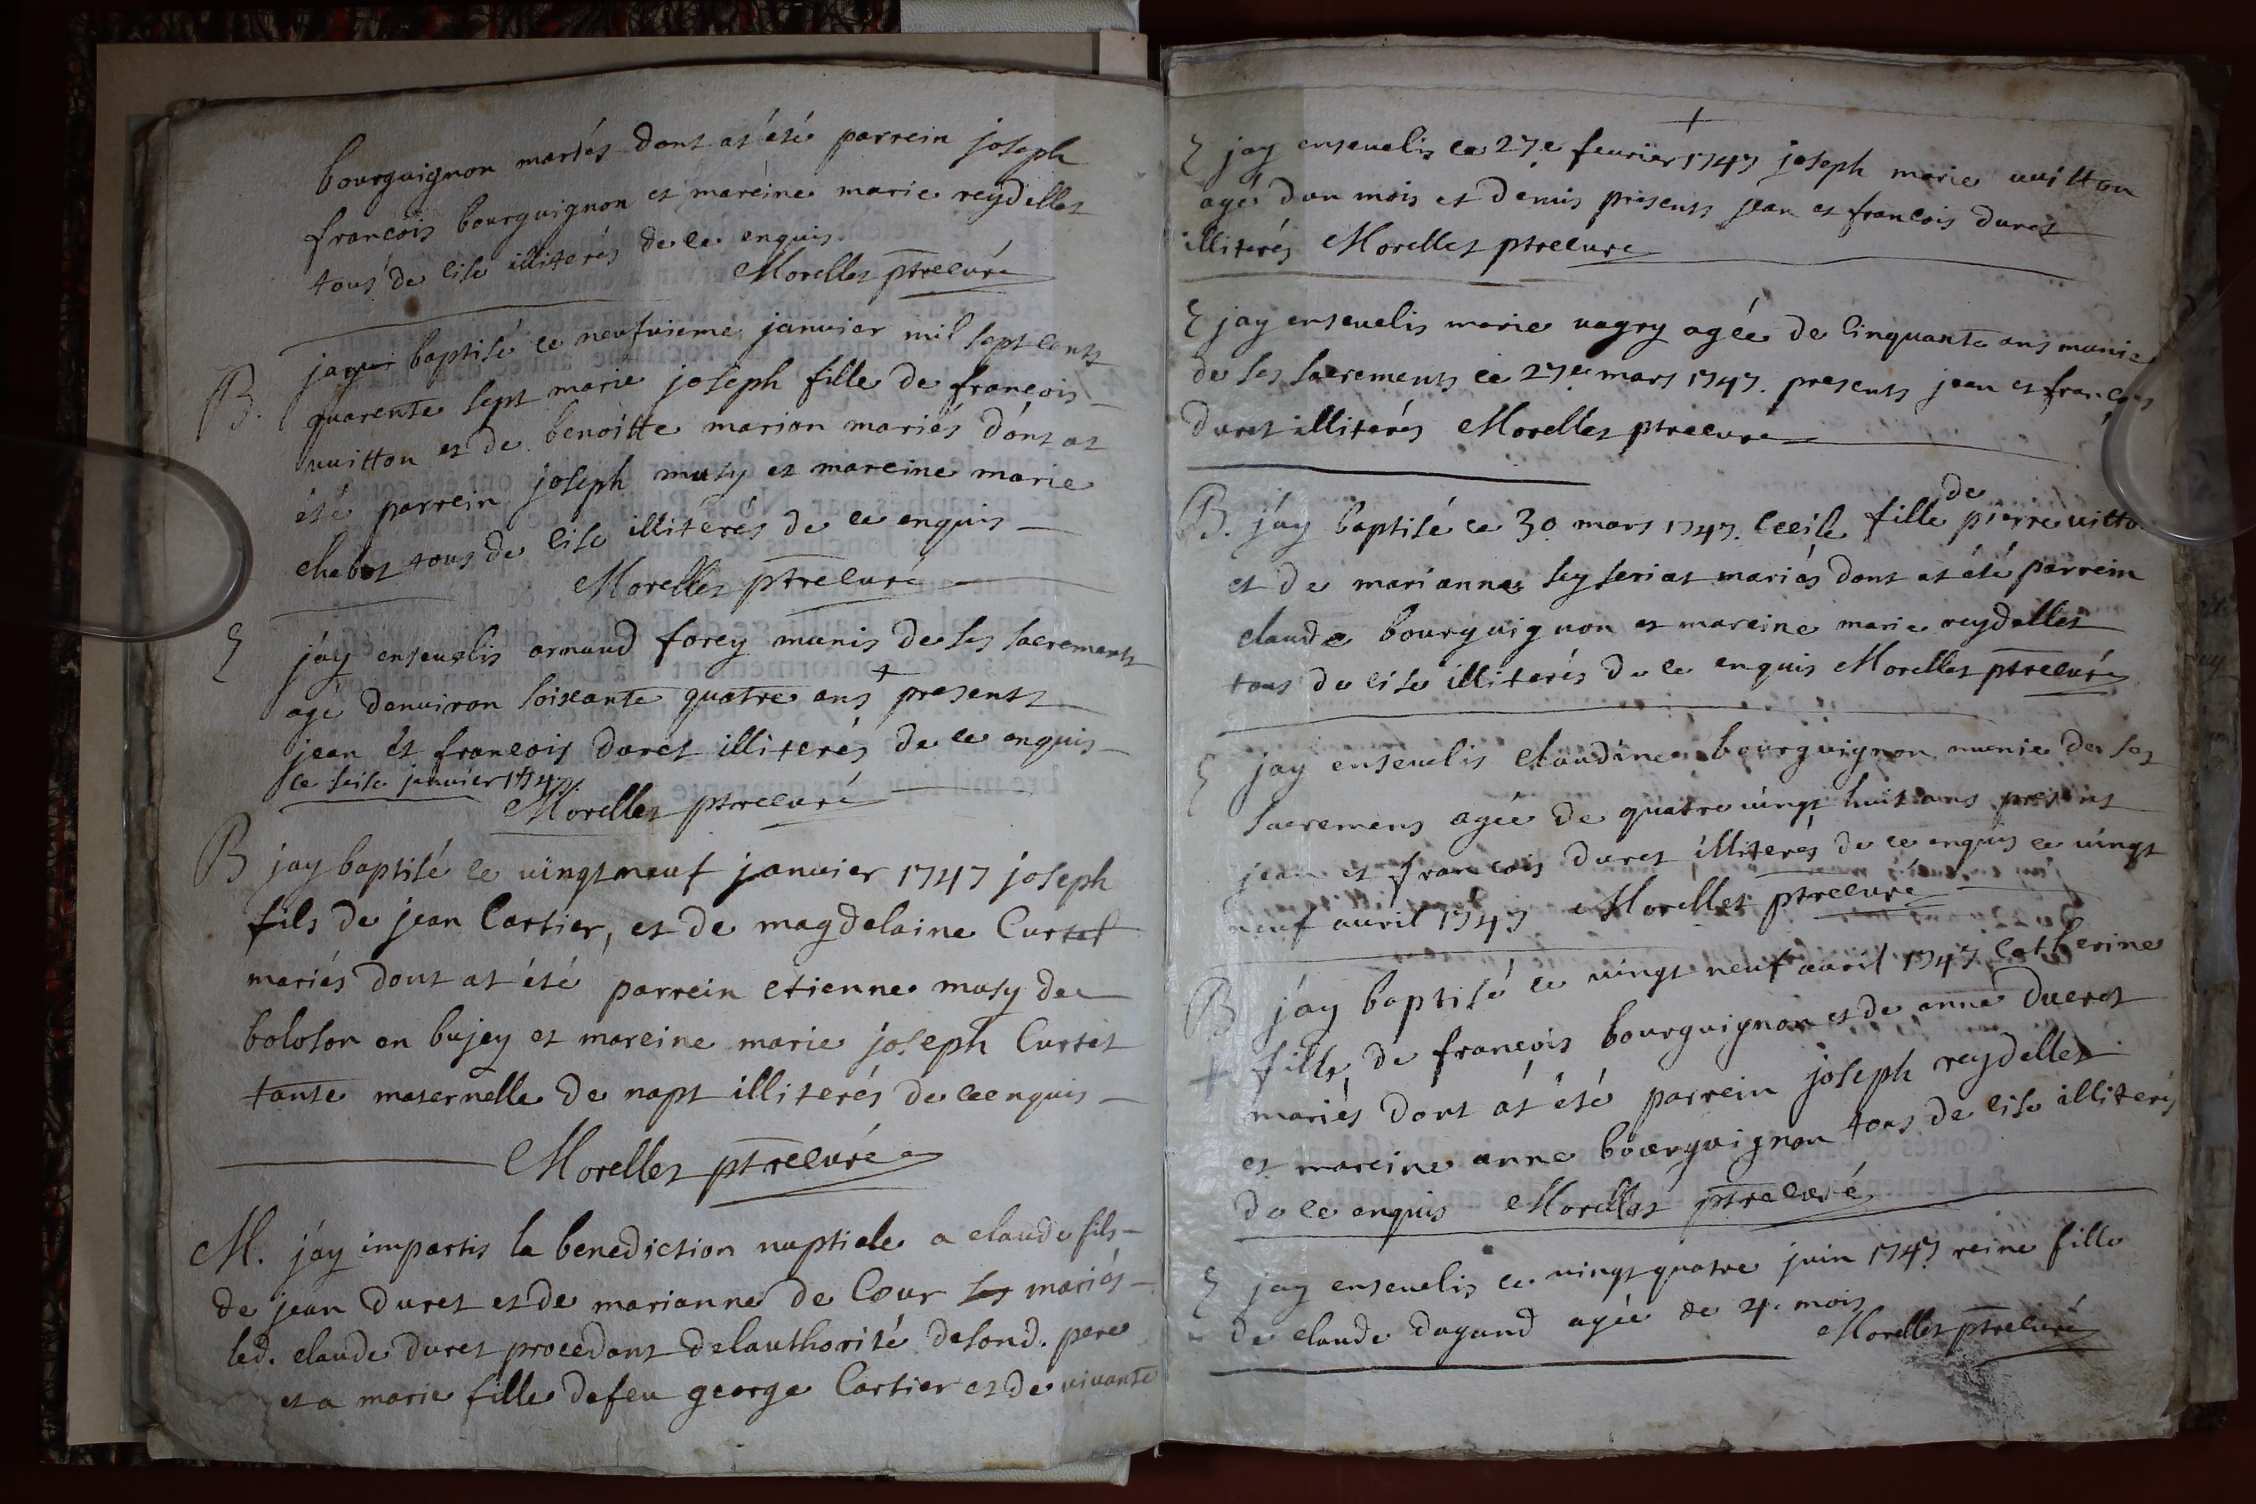 bourguignon mariés dont at été parrein joseph
francois bourguignon et mareine marie reydellet
tous de cise illiterés de ce enquis.
Morellet ptrecuré
B. jay baptisé ce neufvieme janvier mil sept cents
quarente sept marie joseph fille de francois
vuitton et de benoitte marion mariés dont at
été parrein joseph musy et mareine marie
chabot tous de cise illiterés de ce enquis
Morellet ptrecuré
E jay ensevelis armand forey munis de ses sacrements
agé denviron soixante quatre ans + presents
jean et francois duret illiterés de ce enquis
ce seise janvier 1747
Morellet ptrecuré
B jay baptisé ce vingt neuf janvier 1747 joseph
fils de jean Cartier, et de magdelaine Curtet
mariés dont at été parrein etienne musy de
boloson en bujey et mareine marie joseph Curtet
tante maternelle de napt illiterés de ce enquis
Morellet ptrecuré
M. jay impartis la benediction nuptiale a claude fils
de jean duret et de marianne de Cour mariés
led. claude duret procedant delauthorité desond. pere
et a marie fille defeu george Cartier et de vivante
+
E jay ensevelis ce 27e fevrier 1747 joseph marie vuitton
agé dun mois et demis presents jean et francois duret
illiterés Morellet ptrecuré
E jay ensevelis marie vagry agée de cinquante ans munie
de ses sacrements ce 27e mars 1747. presents jean et francois
duret illiterés Morellet ptrecuré
de
B. jay baptisé ce 30 mars 1747. Cecile fille pierre vitton
et de marianne seyseriat mariés dont at été parrein
claude bourguignon et mareine marie reydellet
tous de cise illiterés de ce enquis Morellet ptrecuré
E jay ensevelis claudine bourguignon munie de ses
sacremens agée de quatre vingt huit ans presents
jean et francois duret illiterés de ce enquis ce vingt
neuf avril 1747 Morellet ptrecuré
B jay baptisé ce vingt neuf avril 1747 Catherine
+ fille de francois bourguignon et de anne ducret
mariés dont at été parrein joseph reydellet
et mareine anne bourguignon tous de cise illiterés
de ce enquis Morellet ptrecuré
E jay ensevelis ce vingt quatre juin 1747 reine fille
de claude dagand agée de 4. mois
Morellet ptrecuré